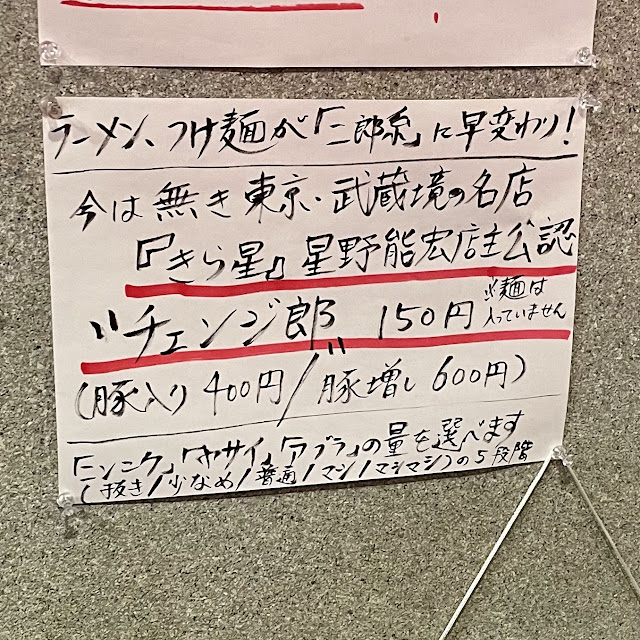 ラーメン、つけ麺が「二郎系」に早変わり!
今は無き東京・武蔵境の名店
『きら星』星野能宏店主公認
"チェンジ郎" 150円 ※麺は入っていません
(豚入り 400円/豚増し 600円)
「ニンニク」「ヤサイ」「アブラ」の量を選べます
(抜き/少なめ/普通/マシ/マシマシ)の5段階